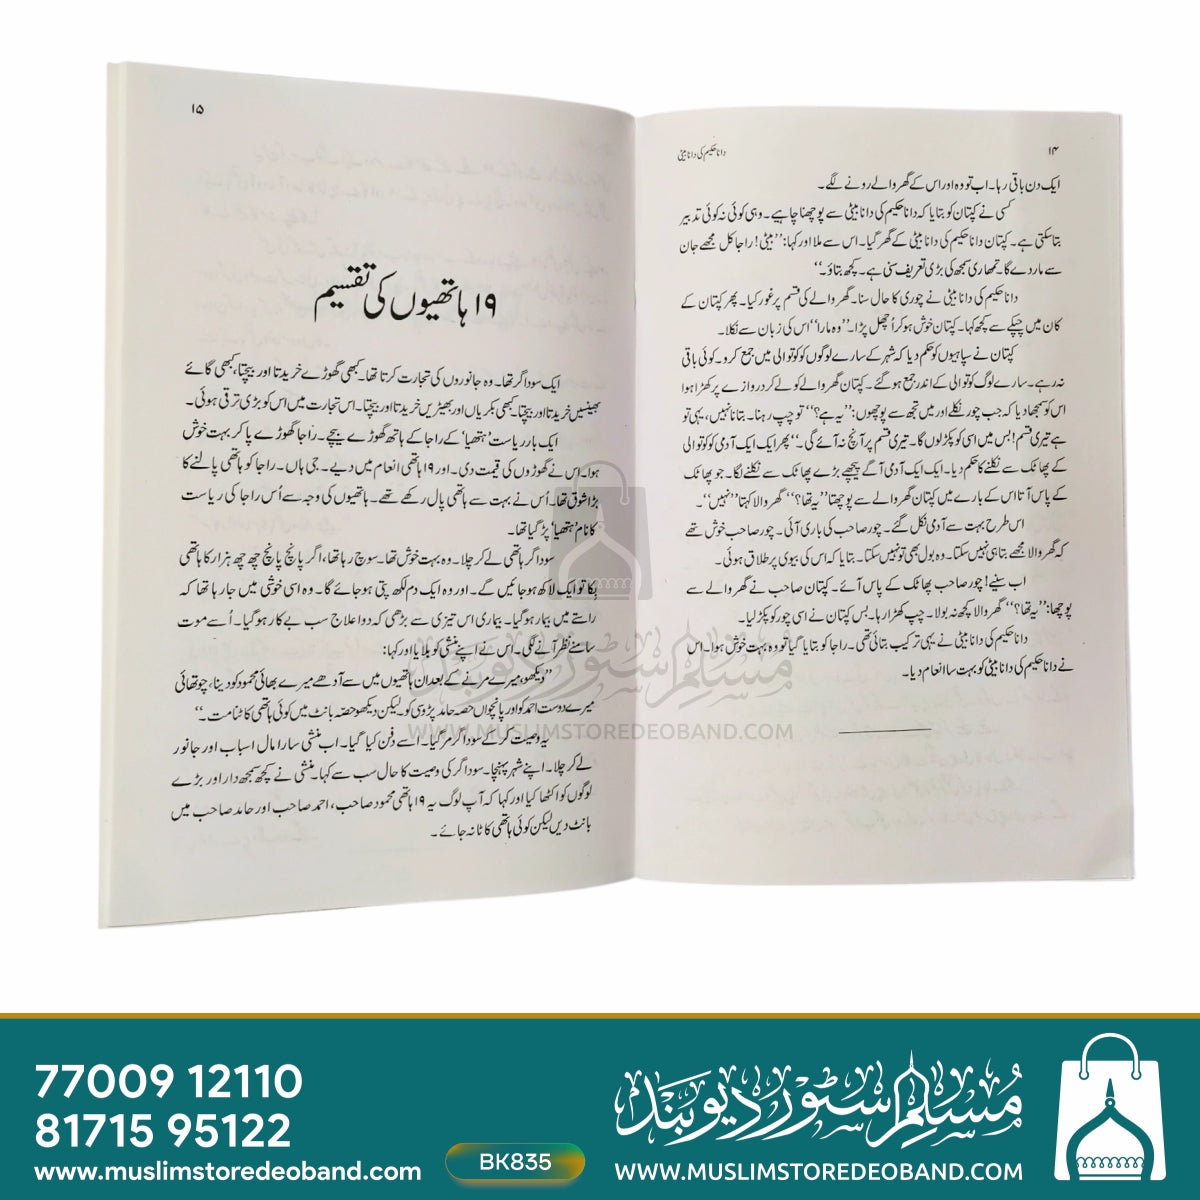 ۱۴
دانا حکیم کی دانا بیٹی
ایک دن باقی رہا۔ اب تو وہ اور اس کے گھر والے رونے لگے۔
کسی نے کپتان کو بتایا کہ دانا حکیم کی دانا بیٹی سے پوچھنا چاہیے۔ وہی کوئی نہ کوئی تدبیر
بتا سکتی ہے۔ کپتان دانا حکیم کی دانا بیٹی کے گھر گیا۔ اس سے ملا اور کہا: ”بیٹی! راجا کل مجھے جان
سے مار دے گا۔ تمھاری سمجھ کی بڑی تعریف سنی ہے۔ کچھ بتاؤ۔“
دانا حکیم کی دانا بیٹی نے چوری کا حال سنا۔ گھر والے کی قسم پر غور کیا۔ پھر کپتان کے
کان میں چپکے سے کچھ کہا۔ کپتان خوش ہو کر اُچھل پڑا۔ ”وہ مارا“ اس کی زبان سے نکلا۔
کپتان نے سپاہیوں کو حکم دیا کہ شہر کے سارے لوگوں کو کوتوالی میں جمع کرو۔ کوئی باقی
نہ رہے۔ سارے لوگ کوتوالی کے اندر جمع ہو گئے۔ کپتان گھر والے کو لے کر دروازے پر کھڑا ہوا
اس کو سمجھا دیا کہ جب چور نکلے اور میں تجھ سے پوچھوں: ”یہ ہے؟“ تو چپ رہنا۔ بتانا نہیں، یہی تو
ہے تیری قسم! بس میں اسی کو پکڑ لوں گا۔ تیری قسم پر آنچ نہ آئے گی۔“ پھر ایک ایک آدمی کو کوتوالی
کے پھاٹک سے نکلنے کا حکم دیا۔ ایک ایک آدمی آگے پیچھے بڑے پھاٹک سے نکلنے لگا۔ جو پھاٹک
کے پاس آتا اس کے بارے میں کپتان گھر والے سے پوچھتا ”یہ تھا؟“ گھر والا کہتا ”نہیں“۔
اس طرح بہت سے آدمی نکل گئے۔ چور صاحب کی باری آئی۔ چور صاحب خوش تھے
کہ گھر والا مجھے بتا ہی نہیں سکتا۔ وہ بول بھی تو نہیں سکتا۔ بتایا کہ اس کی بیوی پر طلاق ہوئی۔
اب سنیے! چور صاحب پھاٹک کے پاس آئے۔ کپتان صاحب نے گھر والے سے
پوچھا: ”یہ تھا؟“ گھر والا کچھ نہ بولا۔ چپ کھڑا رہا۔ بس کپتان نے اسی چور کو پکڑ لیا۔
دانا حکیم کی دانا بیٹی نے یہی ترکیب بتائی تھی۔ راجا کو بتایا گیا تو وہ بہت خوش ہوا۔ اس
نے دانا حکیم کی دانا بیٹی کو بہت سا انعام دیا۔
۱۵
۱۹ ہاتھیوں کی تقسیم
ایک سوداگر تھا۔ وہ جانوروں کی تجارت کرتا تھا۔ کبھی گھوڑے خریدتا اور بیچتا، کبھی گائے
بھینسیں خریدتا اور بیچتا۔ کبھی بکریاں اور بھیڑیں خریدتا اور بیچتا۔ اس تجارت میں اس کو بڑی ترقی ہوئی۔
ایک بار ریاست ’ہتھیا‘ کے راجا کے ہاتھ گھوڑے بیچے۔ راجا گھوڑے پا کر بہت خوش
ہوا۔ اس نے گھوڑوں کی قیمت دی۔ اور ۱۹ ہاتھی انعام میں دیے۔ جی ہاں۔ راجا کو ہاتھی پالنے کا
بڑا شوق تھا۔ اُس نے بہت سے ہاتھی پال رکھے تھے۔ ہاتھیوں کی وجہ سے اُس راجا کی ریاست
کا نام ’ہتھیا‘ پڑ گیا تھا۔
سوداگر ہاتھی لے کر چلا۔ وہ بہت خوش تھا۔ سوچ رہا تھا، اگر پانچ پانچ چھ چھ ہزار کا ہاتھی
بکا تو ایک لاکھ ہو جائیں گے۔ اور وہ ایک دم لکھ پتی ہو جائے گا۔ وہ اسی خوشی میں جا رہا تھا کہ
راستے میں بیمار ہو گیا۔ بیماری اس تیزی سے بڑھی کہ دوا علاج سب بے کار ہو گیا۔ اُسے موت
سامنے نظر آنے لگی۔ اس نے اپنے منشی کو بلایا اور کہا:
”دیکھو، میرے مرنے کے بعد ان ہاتھیوں میں سے آدھے میرے بھائی محمود کو دینا، چوتھائی
میرے دوست احمد کو اور پانچواں حصہ حامد پڑوسی کو۔ لیکن دیکھو حصہ بانٹ میں کوئی ہاتھی کاٹنا مت۔“
یہ وصیت کر کے سوداگر مر گیا۔ اسے دفن کیا گیا۔ اب منشی سارا مال اسباب اور جانور
لے کر چلا۔ اپنے شہر پہنچا۔ سوداگر کی وصیت کا حال سب سے کہا۔ منشی نے کچھ سمجھ دار اور بڑے
لوگوں کو اکٹھا کیا اور کہا کہ آپ لوگ یہ ۱۹ ہاتھی محمود صاحب، احمد صاحب اور حامد صاحب میں
بانٹ دیں لیکن کوئی ہاتھی کاٹا نہ جائے۔
مسلم سٹور دیوبند
WWW.MUSLIMSTOREDEOBAND.COM
77009 12110
81715 95122
www.muslimstoredeoband.com
BK835
مسلم سٹور دیوبند
WWW.MUSLIMSTOREDEOBAND.COM